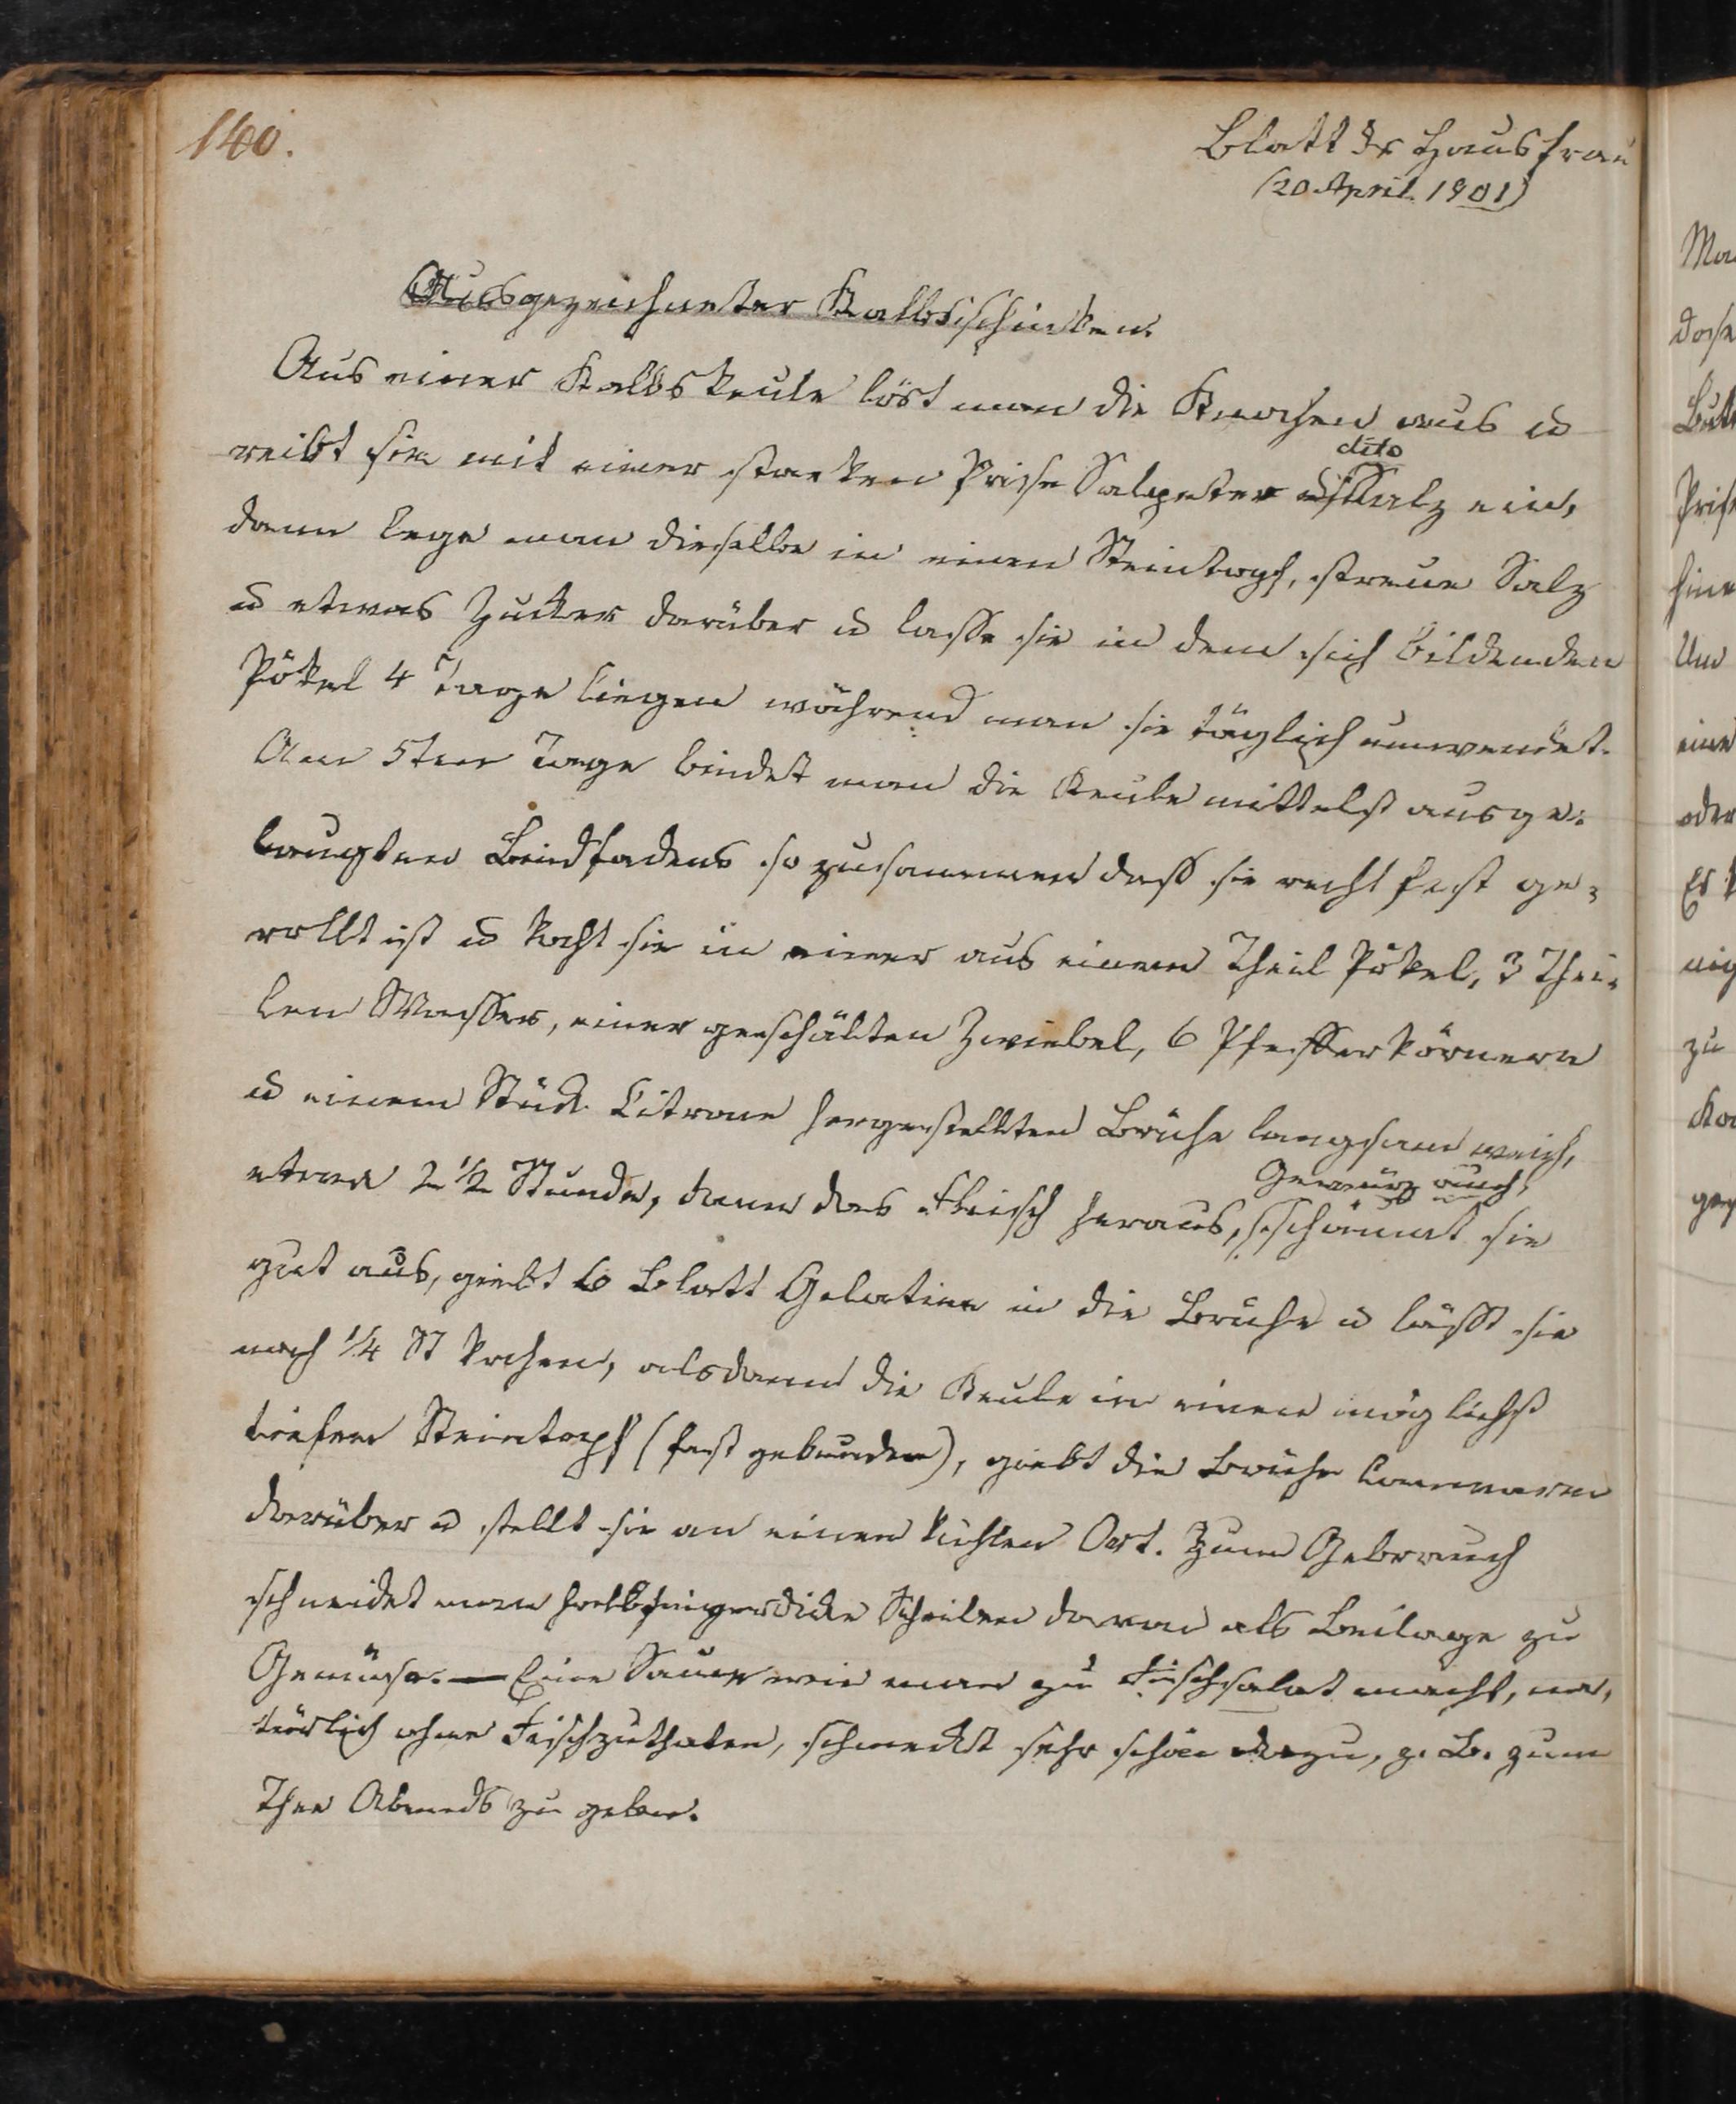 140.
Blatt der Hausfrau
(20. April. 1901)
Ausgezeichneter Kalbsschinken.
Aus einer Kalbskeule löst man die Knochen aus u
dito
reibt sie mit einer starken Prise Salpeter u Salz ein,
dann lege man dieselbe in einen Steintopf, streue Salz
u etwas Zucker darüber u lasse sie in dem sich bildenden
Pökel 4 Tage liegen während man sie täglich umwendet.
Am 5ten Tage bindet man die Keule mittelst ausge-
laugten Bindfadens so zusammen daß sie recht fest ge-
rollt ist u kocht sie in einer aus einem Theil Pökel, 3 Thei-
len Wasser, einer geschälten Zwiebel, 6 Pfefferkörnern
u einem Stück Citrone hergestellten Brühe langsam weich,
Gewürz auch,
etwa 2 1/2 Stunde, dann das Fleisch heraus, schäumt sie
gut aus, giebt 6 Blatt Gelatine in die Brühe u läßt sie
noch 1/4 St kochen, alsdann die Keule in einen möglichst
tiefen Steintopf (fest gebunden), giebt die Brühe lauwarm
darüber u stellt sie an einen kühlen Ort. Zum Gebrauch
schneidet man halbfingerdicke Scheiben davon als Beilage zu
Gemüse. — Eine Sauce wie man zu Fischsalat macht, na-
türlich ohne Fischzuthaten, schmeckt sehr schön dazu, z. B. zum
Thee Abends zu geben.